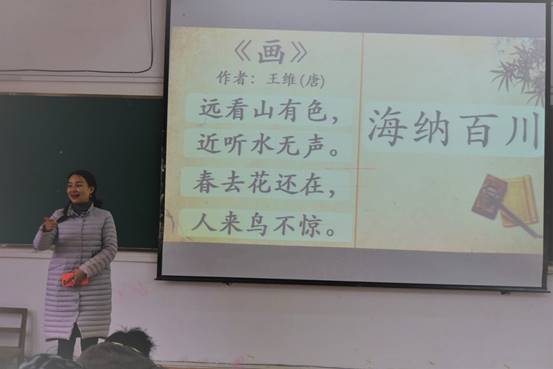 《画》
作者：王维(唐)
远看山有色，
近听水无声。
春去花还在，
人来鸟不惊。
海纳百川